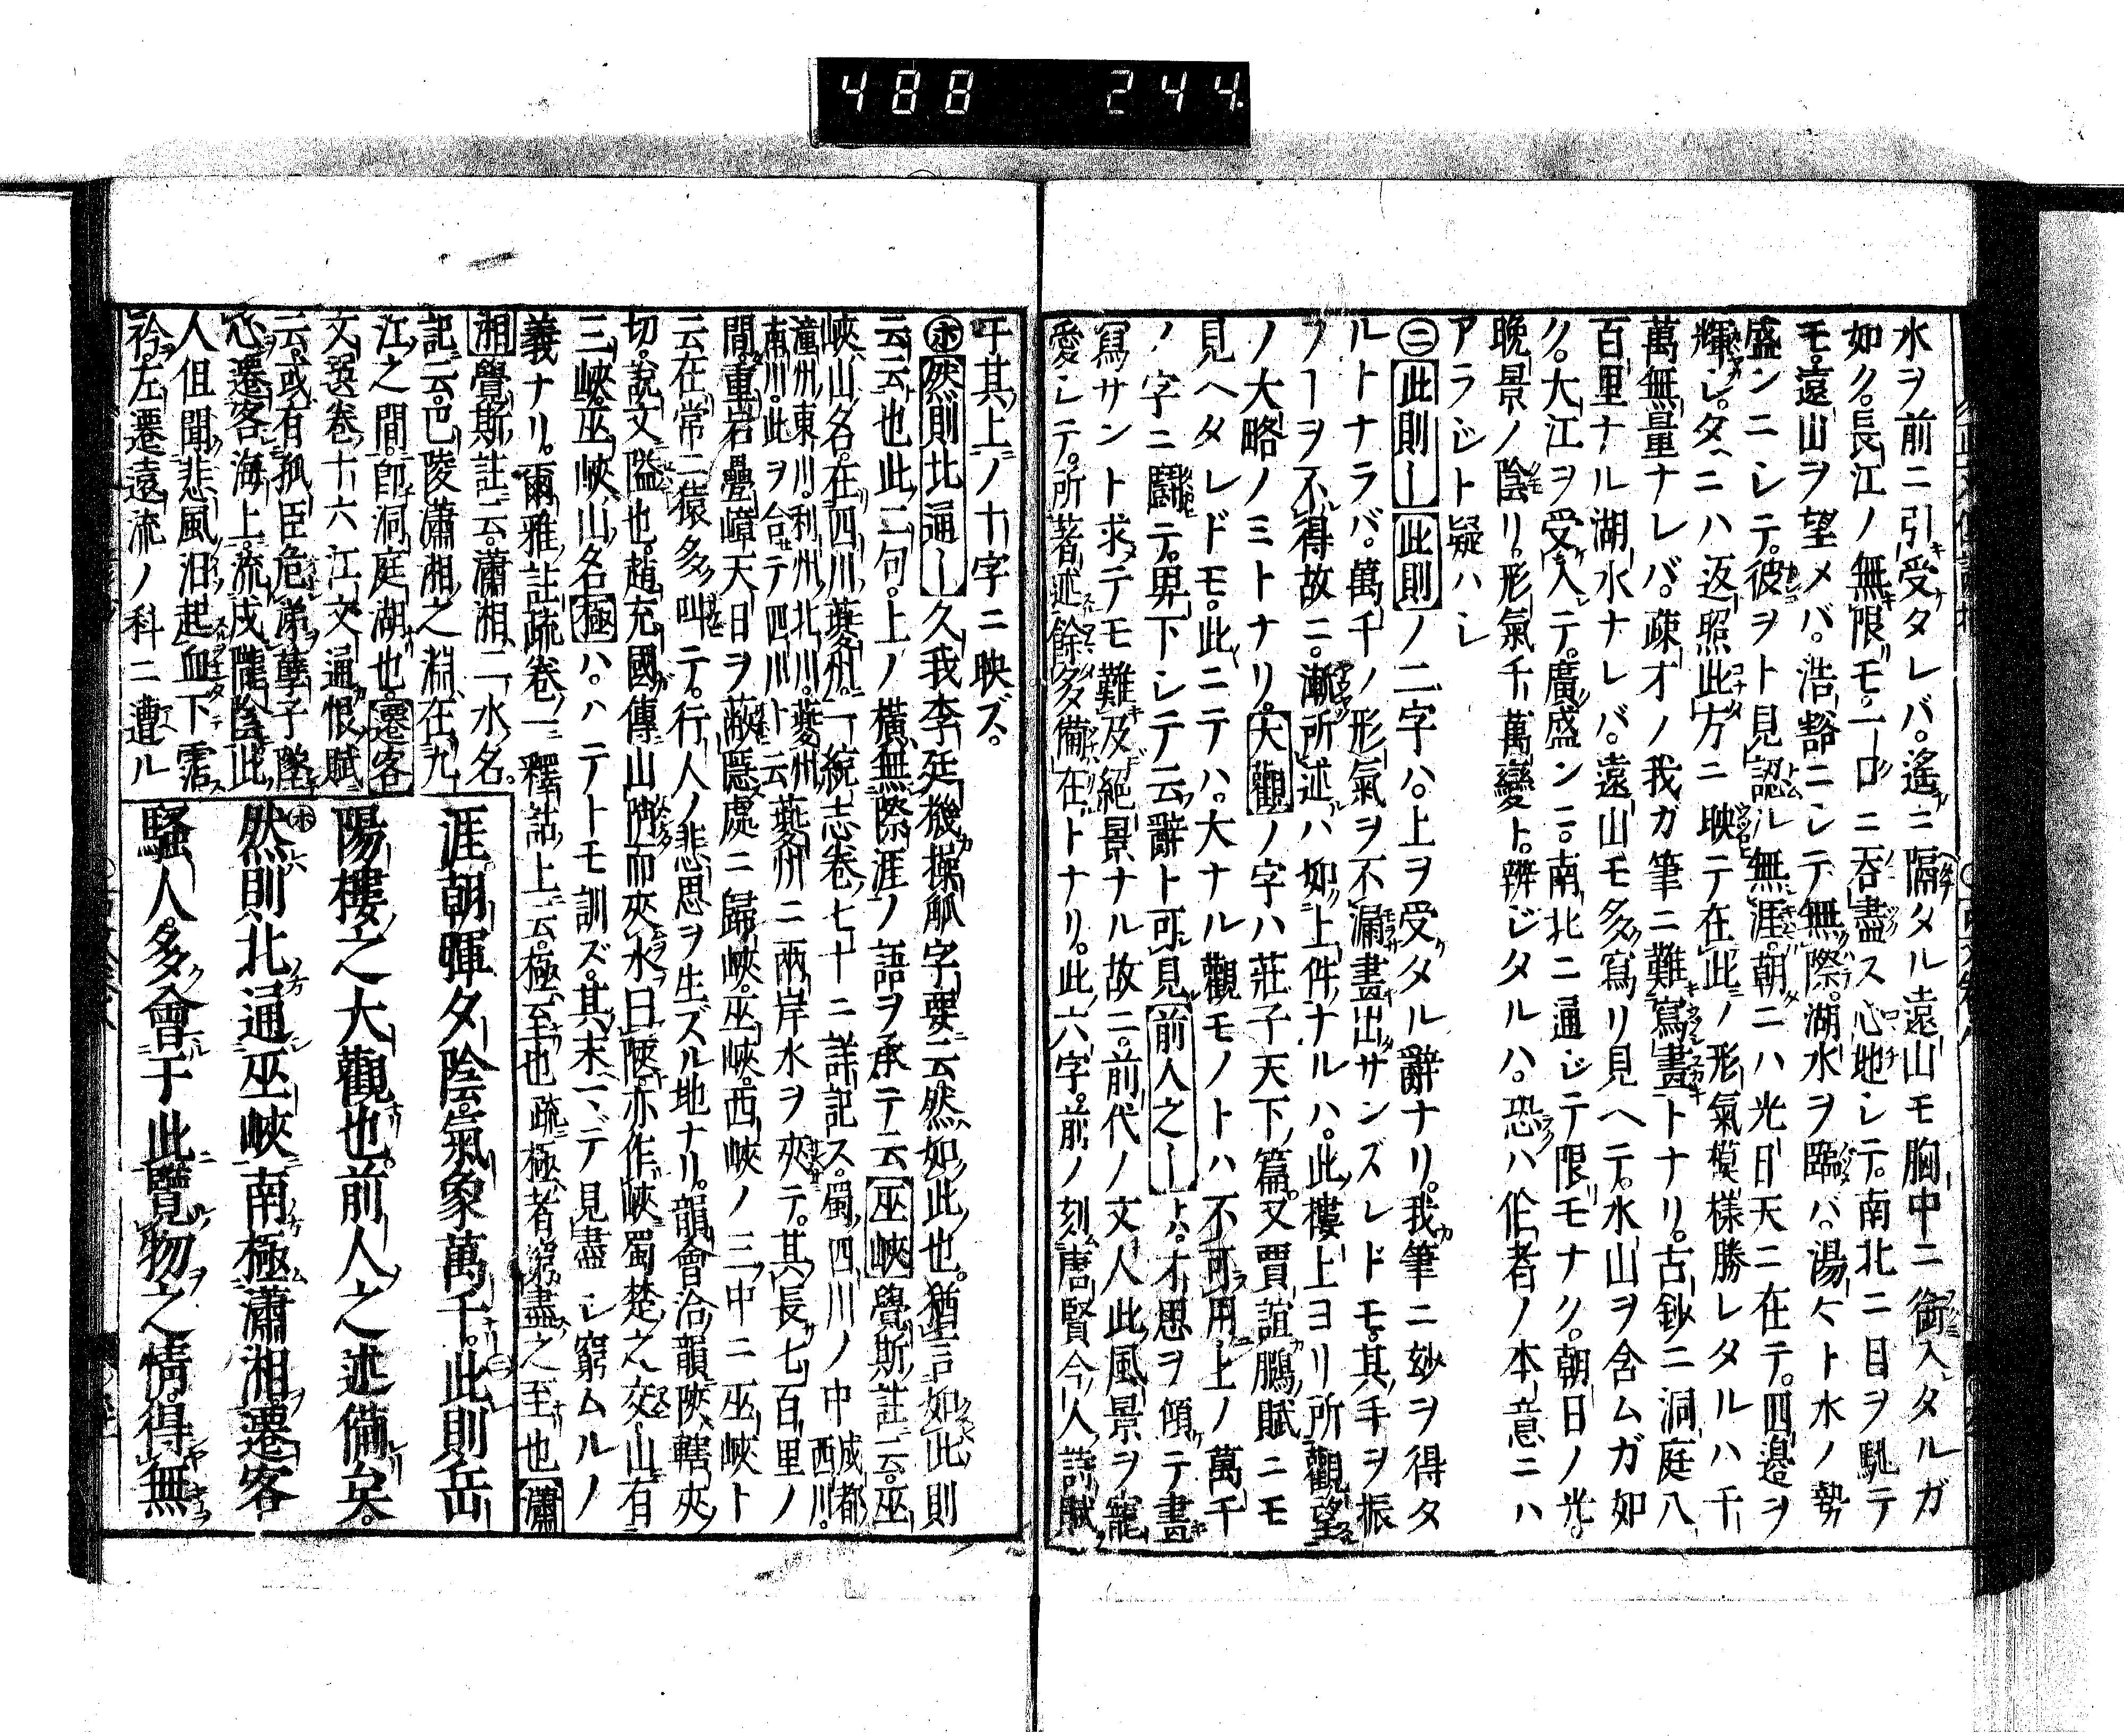 488 244
水ヲ前ニ引受タレバ。遙ニ隔タル遠山モ胸中ニ銜入タルガ
如ク。長江ノ無限モ。一口ニ吞盡ス心地シテ。南北ニ目ヲ馳テ
モ。遠山ヲ望メバ。浩豁ニシテ無際。湖水ヲ臨バ。湯々ト水ノ勢
盛ンニシテ。彼ヲト見認ル無涯。朝ニハ光日天ニ在テ。四邊ヲ
輝シ。夕ニハ返照此方ニ映テ在此ノ形氣模樣勝レタルハ千
萬無量ナレバ。疎才ノ我ガ筆ニ難寫畫トナリ。古鈔ニ洞庭八
百里ナル湖水ナレバ。遠山モ多寫リ見ヘテ。水山ヲ含ムガ如
ク。大江ヲ受入テ。廣盛ンニ。南北ニ通ジテ限モナク。朝日ノ光。
晚景ノ陰リ。形氣千萬變ト。辨ジタルハ。恐ハ作者ノ本意ニハ
アラジト疑ハシ
㊁此則ー此則ノ二字ハ。上ヲ受タル辭ナリ。我筆ニ妙ヲ得タ
ルトナラバ。萬千ノ形氣ヲ不漏畫出サンズレドモ。其手ヲ振
フーヲ不得故ニ。漸所述ハ如上件ナルハ。此樓上ヨリ所觀望
ノ大略ノミトナリ。大觀ノ字ハ莊子天下篇。又賈誼鵩賦ニモ
見ヘタレドモ。此ニテハ。大ナル觀モノトハ不可用上ノ萬千
ノ字ニ鬪テ。界下シテ云辭ト可見前人之ーハ。才思ヲ傾テ畫
寫サント求テモ難及絕景ナル故ニ。前代ノ文人此風景ヲ寵
愛シテ。所著述餘多備在トナリ。此六字。前ノ刻唐賢今人詩賦
于其上ノ十字ニ映ズ。
㊍然則北通ー久我李廷機操觚字要云然如此也。猶言如此則
云云也此二句。上ノ橫無際涯ノ語ヲ承テ云巫峽覺斯註云。巫
峽山名。在四川夔州。一統志卷七十ニ詳記ス。蜀四川ノ中成都西川。
潼州東川。利州北川。夔州南川。此ヲ合テ四川ト云夔州ニ兩岸水ヲ夾テ。其長七百里ノ
間。重岩疊嶂天日ヲ蔽隱處ニ歸峽。巫峽。西峽ノ三中ニ巫峽ト
云在常ニ猿多叫テ。行人ノ悲思ヲ生ズル地ナリ。韻會洽韻陝轄夾
切。說文隘也。趙充國傳山陿而夾水曰陝。亦作峽蜀楚之交山有
三峽。巫峽山名極ハ。ハテトモ訓ズ。其末マデ見盡シ窮ムルノ
義ナリ。爾雅註疏卷一釋詁上云。極至也疏極者窮盡之至也瀟
湘覺斯註云。瀟湘二水名。
記云。巴陵瀟湘之淵在九
江之間。卽洞庭湖也。遷客
文選卷十六江文通恨賦
云。或有孤臣危涕孼子墜
心。遷客海上。流戍隴陰此
人但聞悲風汨起血下霑
衿。左遷遠流ノ科ニ遭ル
涯朝暉夕陰。氣象萬千。此則岳
陽樓之大觀也。前人之述備矣。
然則北通巫峽南極瀟湘。遷客
騷人。多會于此覽物之情。得無